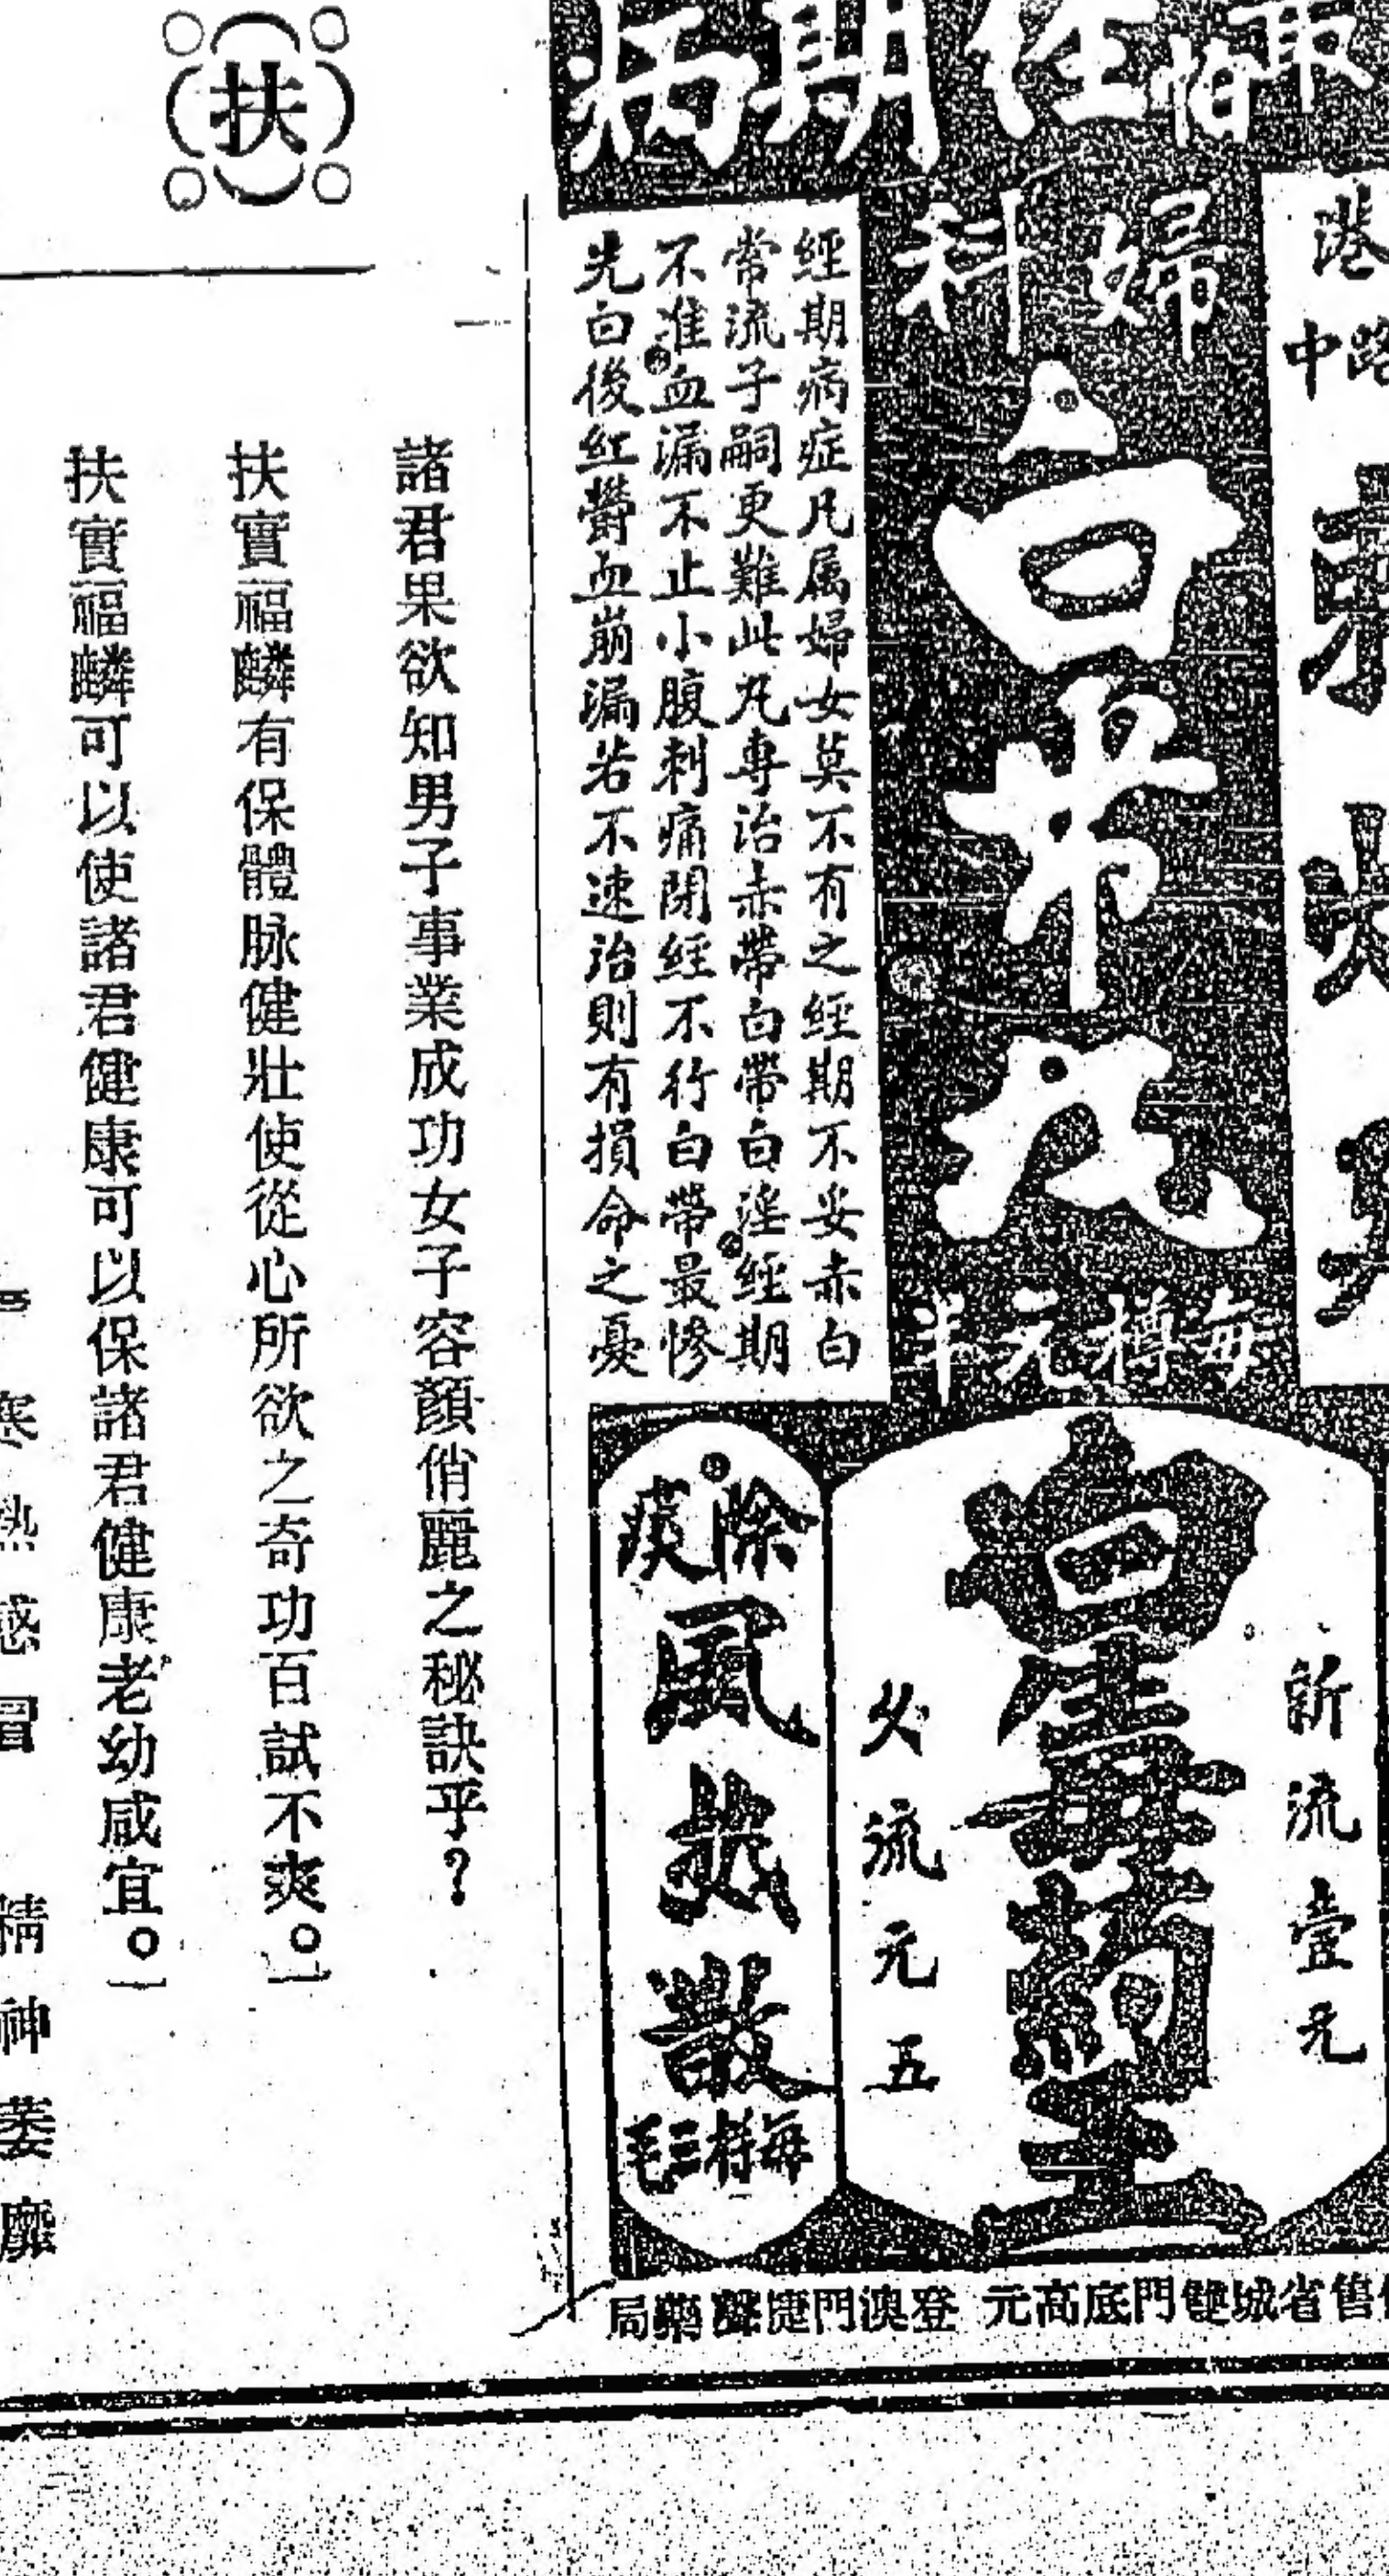 最怕經期病
港
路中
婦科
白带丸
每樽元半
經期病症凡属婦女莫不有之經期不妥赤白
常流子嗣更難此丸專治赤帶白帶白淫經期
不准血漏不止小腹刺痛閉經不行白帶最慘
先白後紅欝血崩漏若不速治則有損命之憂
新流壹元
白濁藥王
久流元五
除痰
風熱散
每樽三毛
售省城雙門底高元登澳門捷聲藥局
扶
諸君果欲知男子事業成功女子容顏俏麗之秘訣乎？
扶實福麟有保體脉健壯使從心所欲之奇功百試不爽。]
扶實福麟可以使諸君健康可以保諸君健康老幼咸宜。]
寒熱感冒 精神萎靡